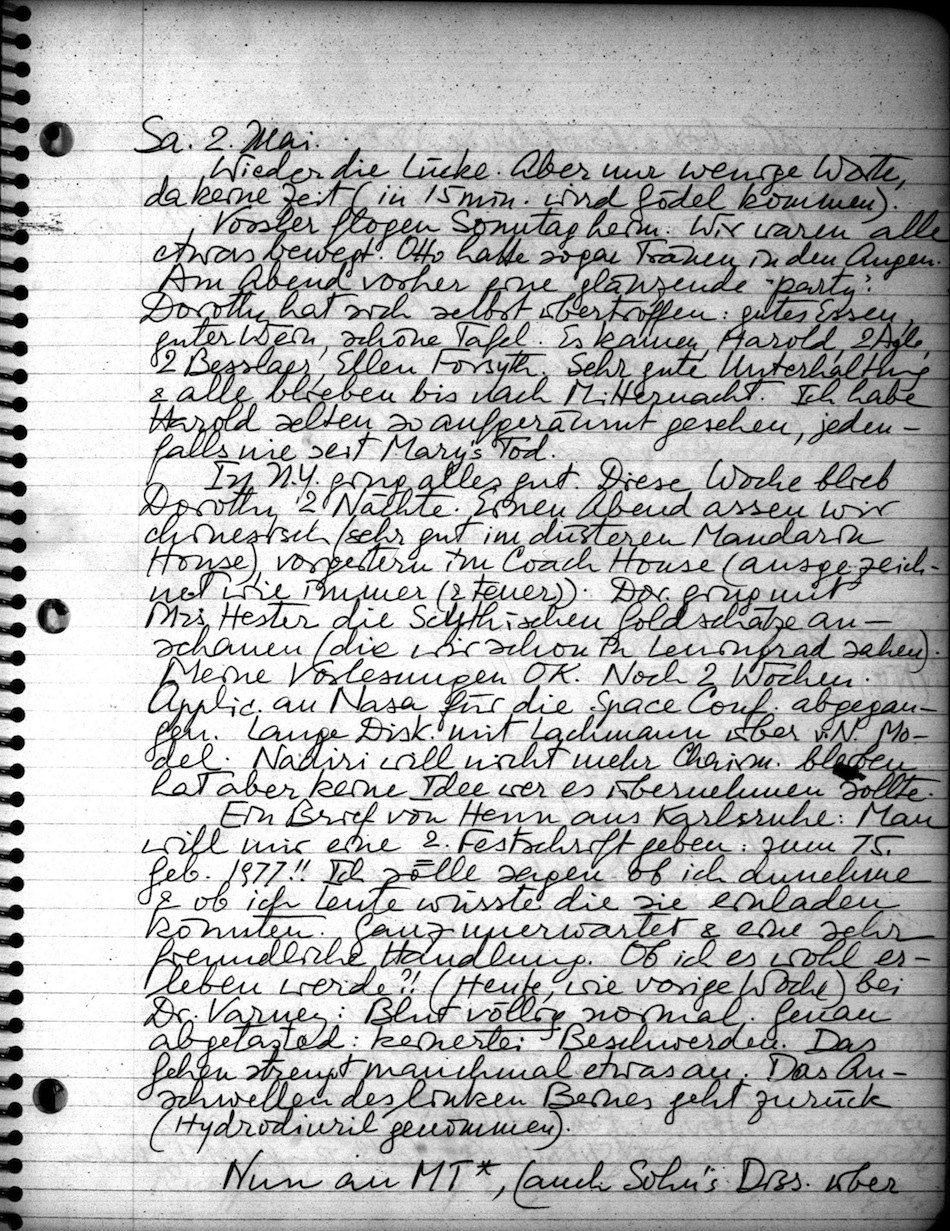 Sa. 2. Mai.
Wieder die Lücke. Aber nur wenige Worte,
da keine Zeit (in 15 min. wird Gödel kommen).
Vossler flogen Sonntag heim. Wir waren alle
etwas bewegt. Otto hatte sogar Tränen in den Augen.
Am Abend vorher eine glänzende "party":
Dorothy hat sich selbst übertroffen: gutes Essen,
guter Wein, schöne Tafel. Es kamen Harold, 2
2 Ellen Forsyth. Sehr gute Unterhaltung
& alle blieben bis nach Mitternacht. Ich habe
Harold selten so aufgeräumt gesehen, jeden-
falls nie seit Mary's Tod.
In N.Y. ging alles gut. Diese Woche blieb
Dorothy 2 Nächte. Einen Abend assen wir
chinesisch (sehr gut im düsteren Mandarin
House) vorgestern im Coach House (ausgezeich-
net wie immer (& teuer)). Dor. ging mit
Mrs. Hester die Scythischen Goldschätze an-
schauen (die wir schon in Leningrad sahen).
Meine Vorlesungen OK. Noch 2 Wochen.
Applic. an Nasa für die Space Conf. abgegan-
gen. Lange Disk. mit Lachmann über v.N. Mo-
del. Nadiri will nicht mehr Chairm. bleiben
hat aber keine Idee wer es übernehmen sollte.
Ein Brief von Henn aus Karlsruhe: Man
will mir eine 2. Festschrift geben: zum 75.
Geb. 1977!! Ich solle sagen ob ich annehme
& ob ich Leute wüsste die sie einladen
könnten. Ganz unerwartet & eine sehr
freundliche Handlung. Ob ich es wohl er-
leben werde?! (Heute, wie vorige Woche) bei
Dr. Varney: Blut völlig normal. Genau
abgetastet: keinerlei Beschwerden. Das
Gehen strengt manchmal etwas an. Das An-
schwellen des linken Beines geht zurück
(Hydrodiuril genommen).
Nun an MT*, (auch Sohn's Diss. über